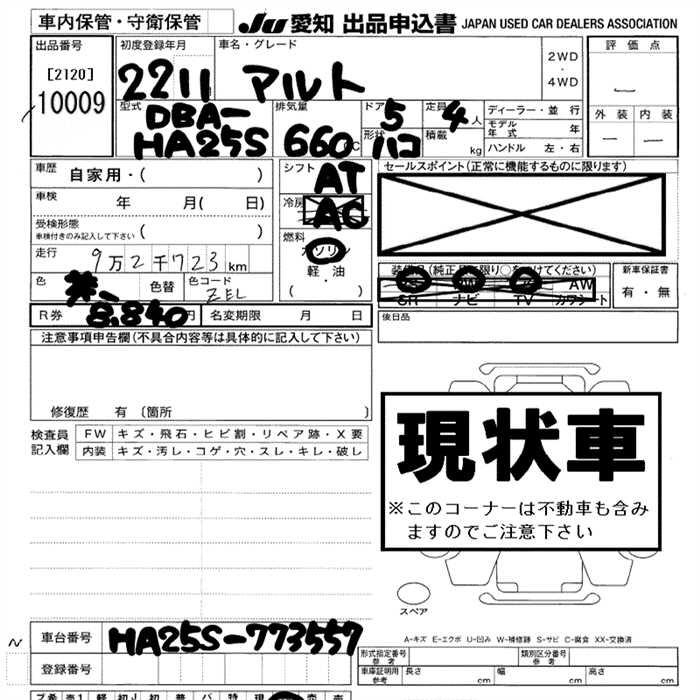 車内保管・守衛保管 JU 愛知 出品申込書 JAPAN USED CAR DEALERS ASSOCIATION
出品番号 初度登録年月 車名・グレード 2WD・4WD 評価点
[2120] 2211 アルト
10009
型式 排気量 ドア 定員 ディーラー・並行 外装 内装
DBA- 5 4人 モデル年式 年
HA25S 660cc 形状 ハコ 積載 kg ハンドル 左・右
車歴 自家用・( ) シフト AT セールスポイント(正常に機能するものに限ります)
車検 年 月( 日) 冷房 AC
受検形態
車検付きのみ記入して下さい ( ) 燃料 ガソリン
走行 9万2千723km 軽・油 装備品(純正品に限り○をつけてください) 新車保証書
色 色替 色コード ( ・ ) AW 有・無
ZEL SR ナビ TV カワシート
R券 8,840円 名変期限 月 日 後日品
注意事項申告欄(不具合内容等は具体的に記入して下さい)
修復歴 有 〔箇所 〕
現状車
※このコーナーは不動車も含み
ますのでご注意下さい
検査員 FW キズ・飛石・ヒビ割・リペア跡・X要
記入欄 内装 キズ・汚レ・コゲ・穴・スレ・キレ・破レ
スペア
A-キズ E-エクボ U-凹み W-補修跡 S-サビ C-腐食 XX-交換済
車台番号 HA25S-773557
型式指定番号 参考 類別区分番号 参考
登録番号 車庫証明用 参考 長さ cm 幅 cm 高さ cm